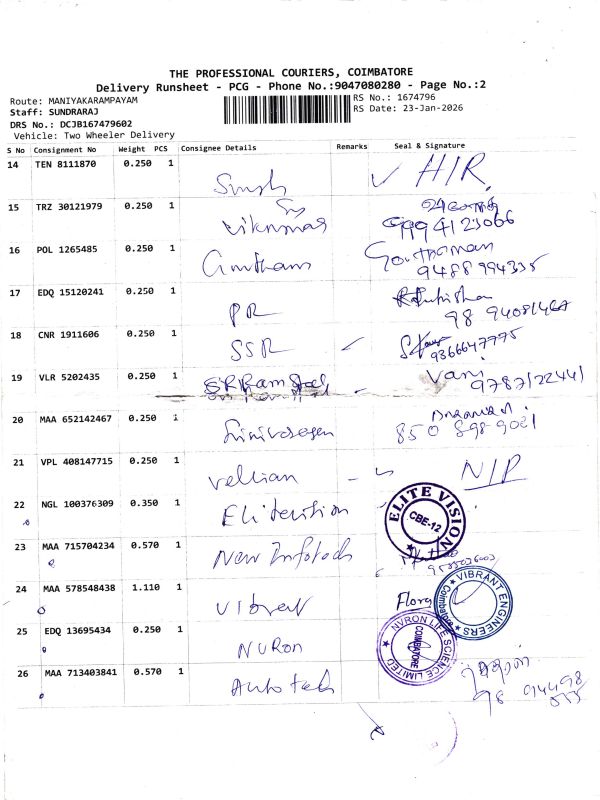 THE PROFESSIONAL COURIERS, COIMBATORE
Delivery Runsheet - PCG - Phone No.:9047080280 - Page No.:2
Route: MANIYAKARAMPAYAM
RS No.: 1674796
Staff: SUNDRARAJ
RS Date: 23-Jan-2026
DRS No.: DCJB167479602
Vehicle: Two Wheeler Delivery
S No Consignment No Weight PCS Consignee Details Remarks Seal & Signature
14 TEN 8111870 0.250 1
15 TRZ 30121979 0.250 1
9994123066
16 POL 1265485 0.250 1 Gowtham Gowthaman
9488994335
17 EDQ 15120241 0.250 1 PR
18 CNR 1911606 0.250 1 SSR
9366647775
19 VLR 5202435 0.250 1 Vani
9787122441
20 MAA 652142467 0.250 1
850 898 9021
21 VPL 408147715 0.250 1 Vellian
22 NGL 100376309 0.350 1 Elitevision ELITE VISION CBE-12
23 MAA 715704234 0.570 1 New Infotech
24 MAA 578548438 1.110 1 Vibrant Flora VIBRANT ENGINEERS Coimbatore
25 EDQ 13695434 0.250 1 NVRon NVRON LIFE SCIENCE LIMITED COIMBATORE
26 MAA 713403841 0.570 1 Autotech